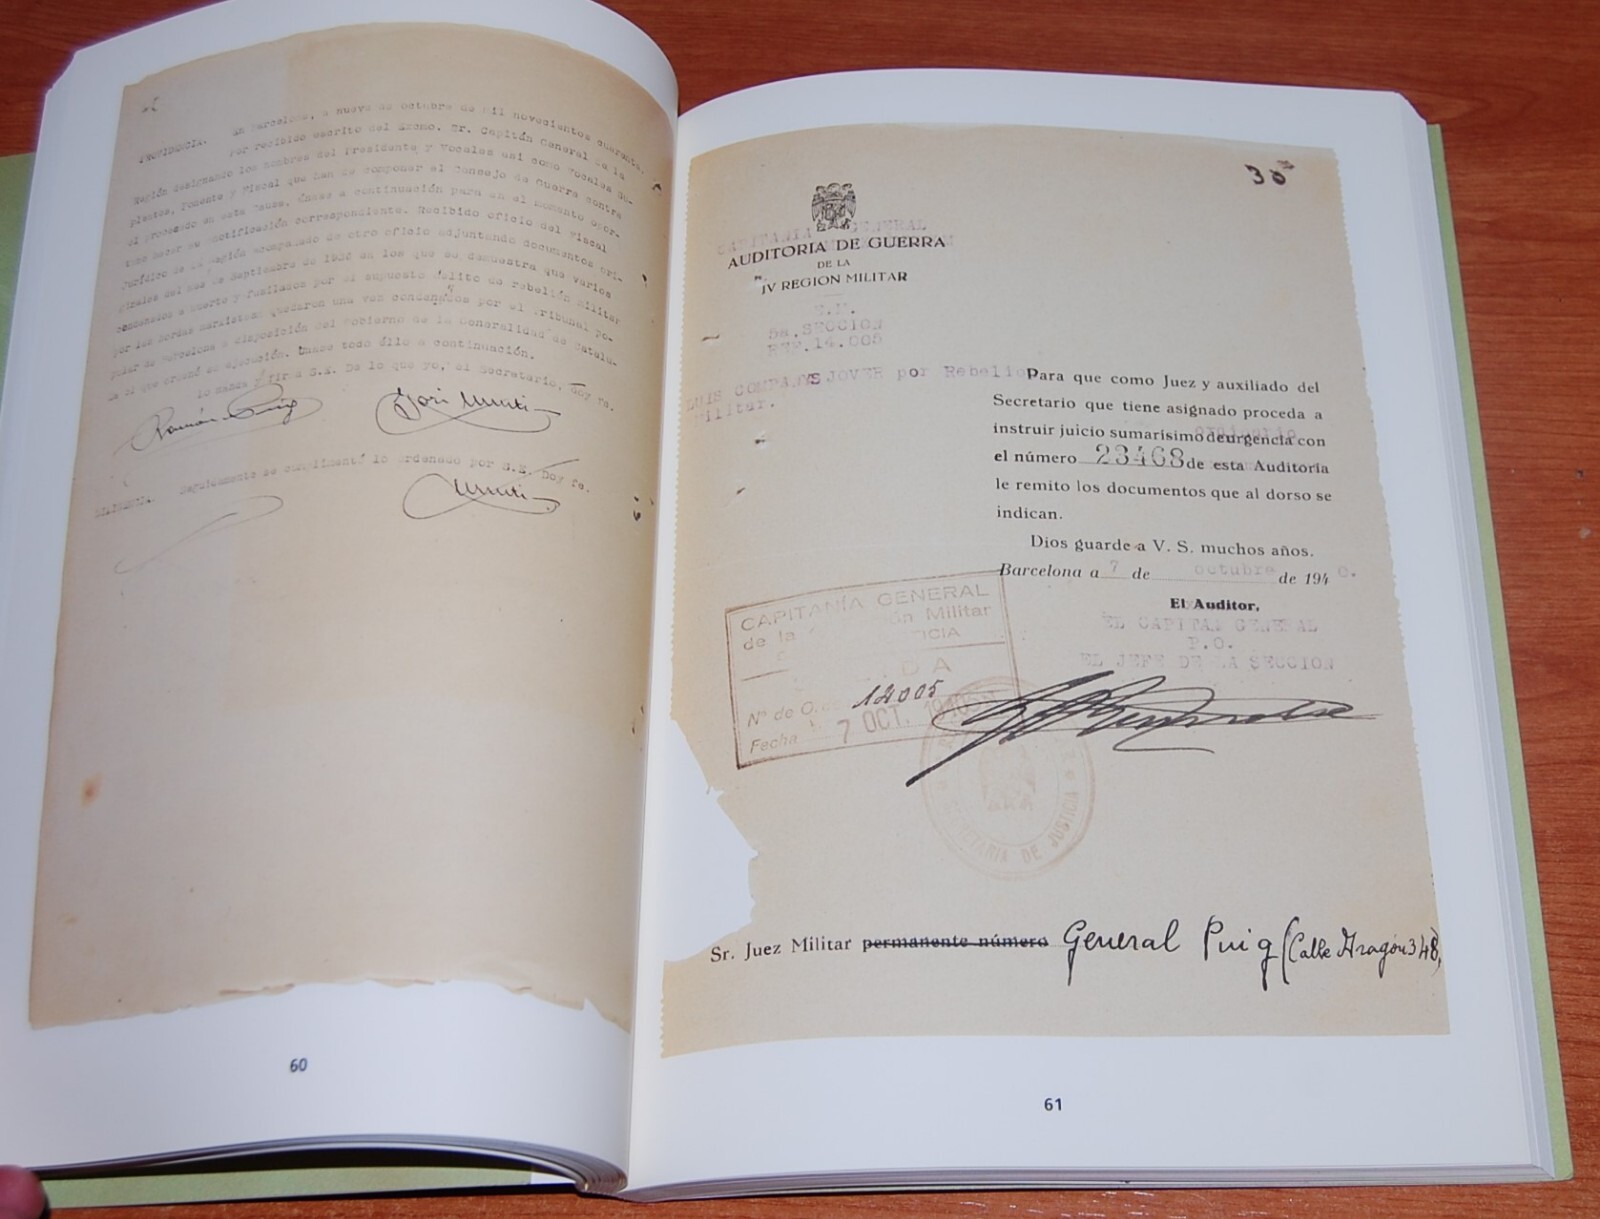 PROVIDENCIA. En Barcelona, a nueve de octubre de mil novecientos cuarenta.
Por recibido escrito del Excmo. Sr. Capitán General de la
Región designando los nombres del Presidente y Vocales así como Vocales Su-
plentes, Ponente y Fiscal que han de componer el Consejo de Guerra contra
el procesado en esta Causa, únase a continuación para en el momento opor-
tuno hacer su notificación correspondiente. Recibido oficio del Fiscal
Jurídico de la Región acompañado de otro oficio adjuntando documentos ori-
ginales del mes de Septiembre de 1936 en los que se demuestra que varios
condenados a muerte y fusilados por el supuesto delito de rebelión militar
por las hordas marxistas quedaron una vez condenados por el Tribunal po-
pular de Barcelona a disposición del Gobierno de la Generalidad de Catalu-
ña el que ordenó su ejecución. Unase todo éllo a continuación.
Lo manda y firma S.E. De lo que yo, el Secretario, doy fe.
Ramón Puig
DILIGENCIA. Seguidamente se cumplimentó lo ordenado por S.E. Doy fe.
60
30
CAPITANIA GENERAL
AUDITORIA DE GUERRA
DE LA
IV REGION MILITAR
E.M.
5a.SECCION
REF.14.005
LUIS COMPANYS JOVER por Rebelio
militar.
Para que como Juez y auxiliado del
Secretario que tiene asignado proceda a
instruir juicio sumarísimo de urgencia con
ordinario
el número 23468 de esta Auditoría
le remito los documentos que al dorso se
indican.
Dios guarde a V. S. muchos años.
Barcelona a 7 de octubre de 1940.
El Auditor,
EL CAPITAN GENERAL
P.O.
EL JEFE DE LA SECCION
CAPITANÍA GENERAL
de la Militar
Nº de O. 14005
Fecha 7 OCT. 1940
DE JUSTICIA
Sr. Juez Militar permanente número General Puig (Calle Aragón 348,
61